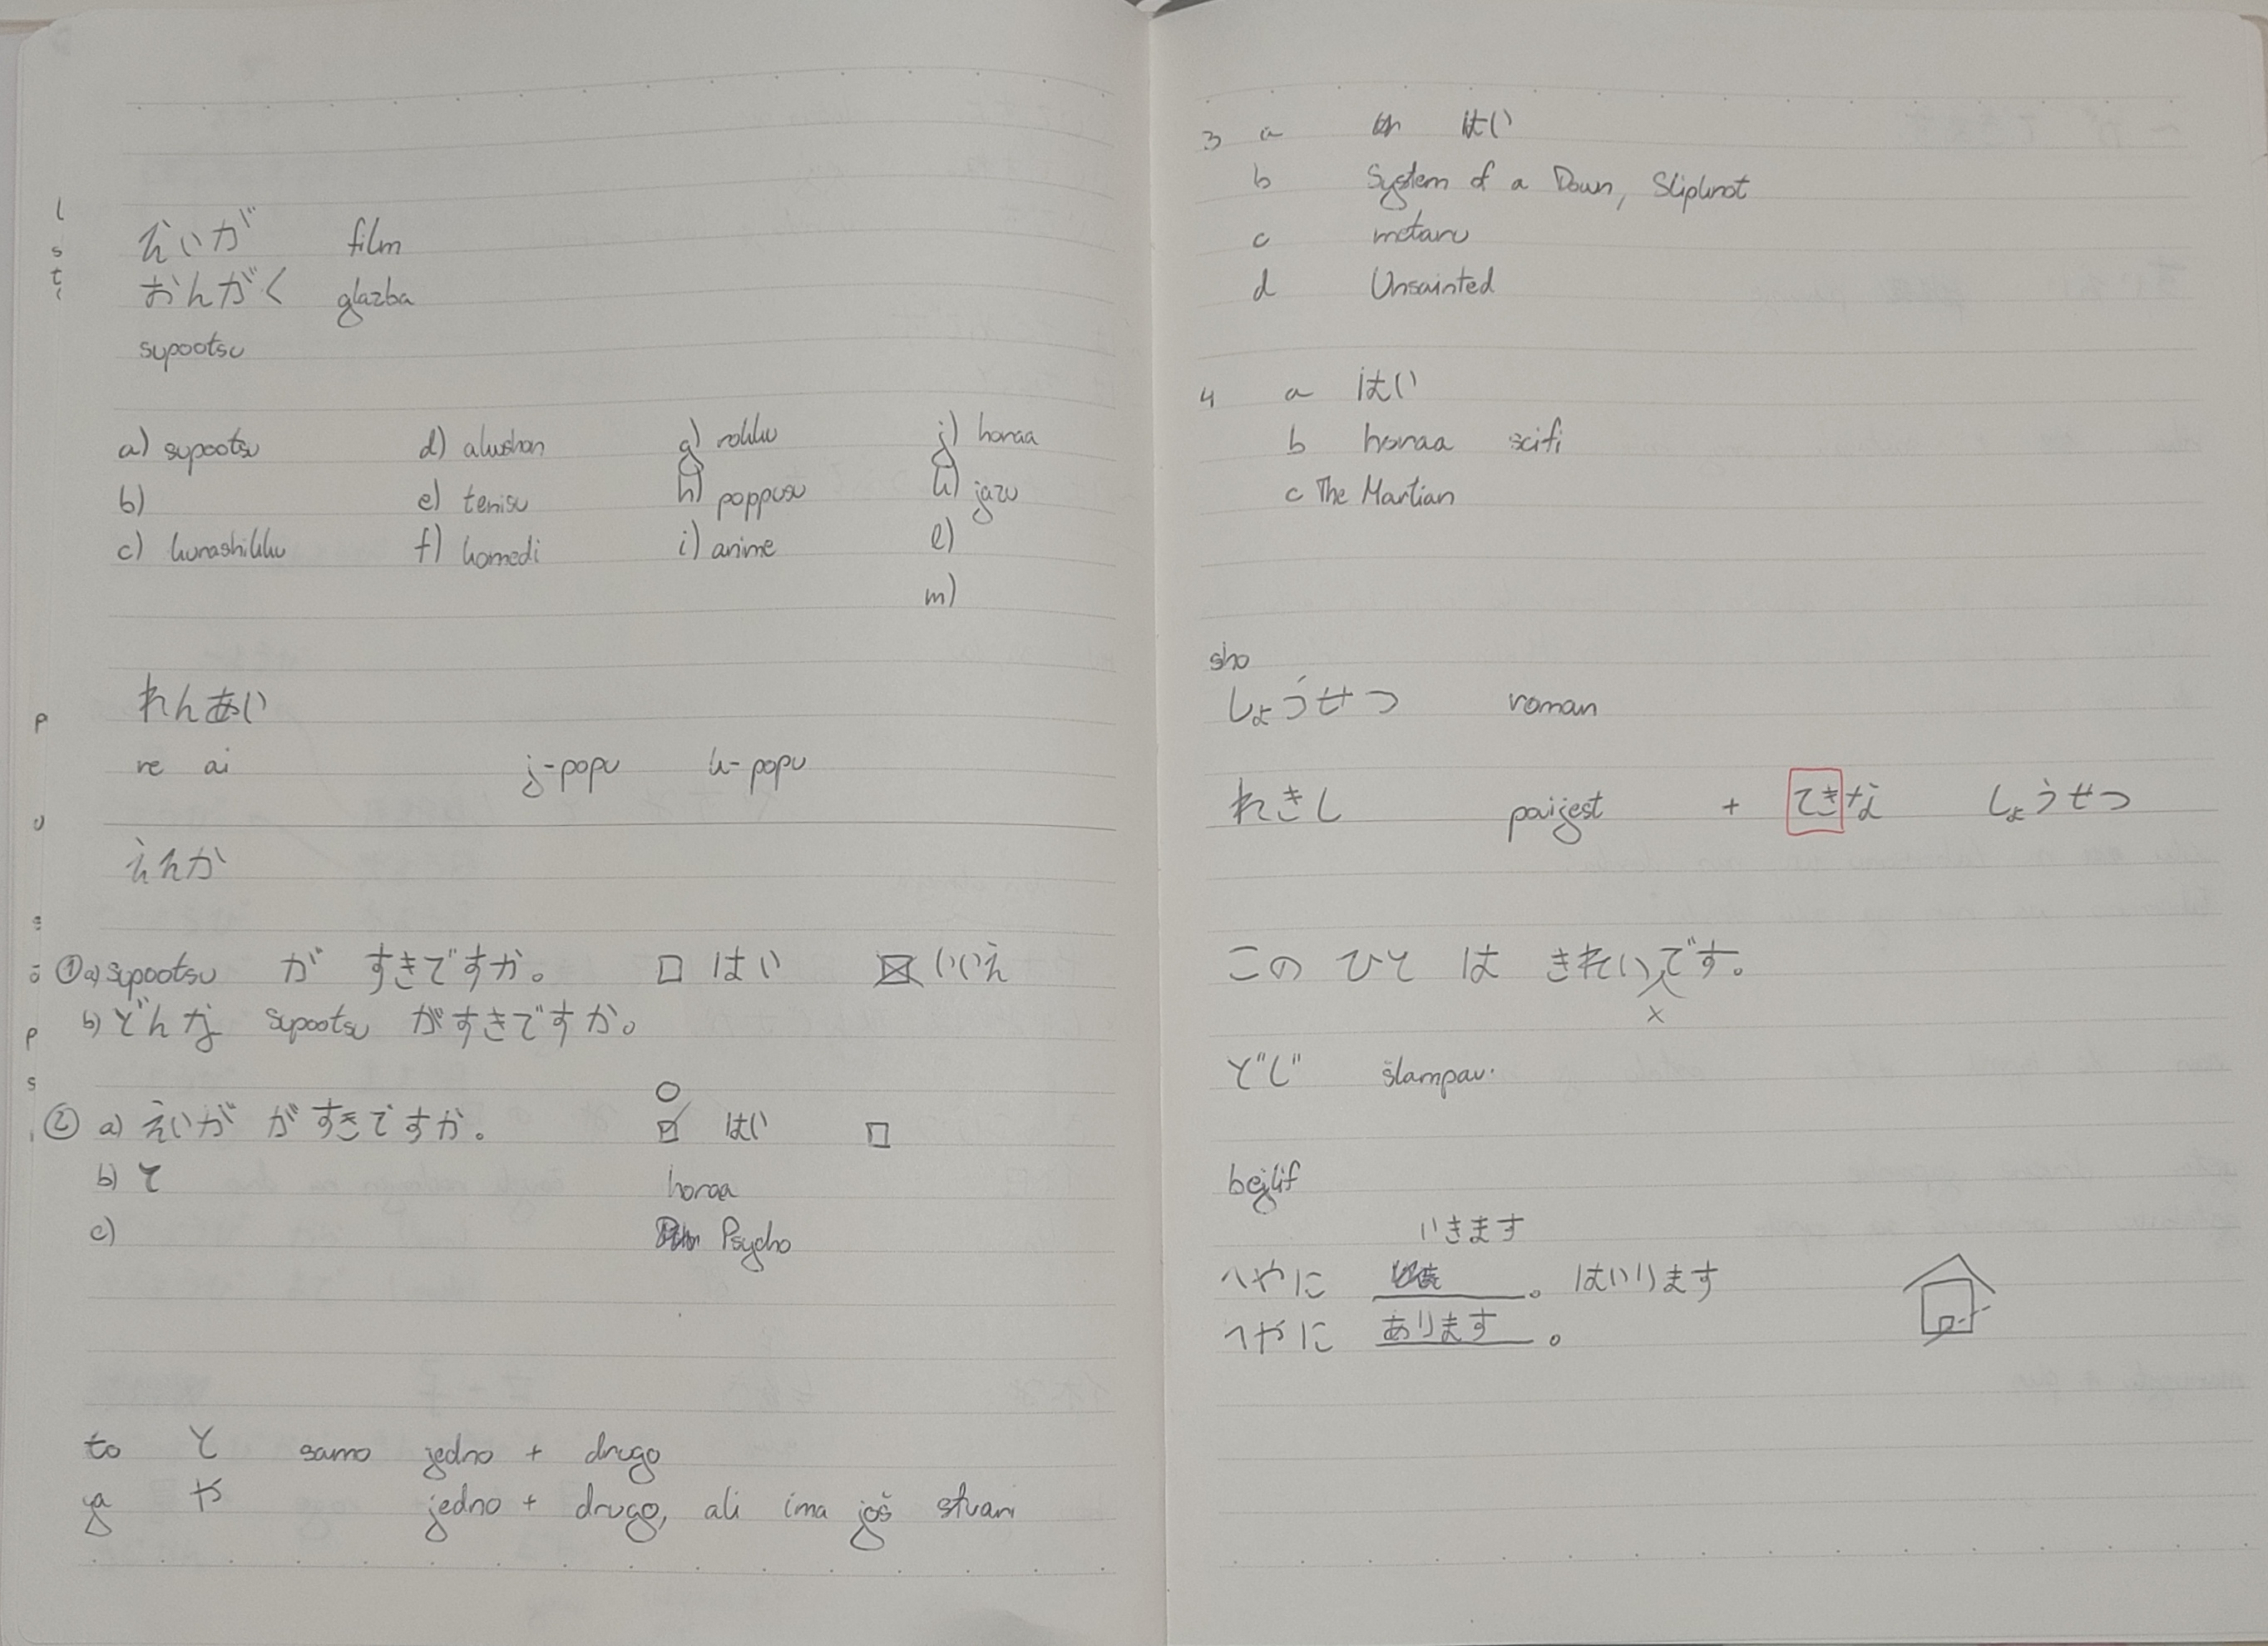 えいが film
おんがく glazba
supootsu
a) supootsu d) akushon g) rokku j) horaa
b) e) tenisu h) poppusu k) jazu
c) kurashikku f) komedi i) anime l)
m)
れんあい
re ai j-popu k-popu
えんか
① a) supootsu が すきですか。 □ はい ☒ いいえ
b) どんな supootsu がすきですか。
② a) えいが がすきですか。 ☑ はい □
b) て horaa
c) Psycho
to と samo jedno + drugo
ya や jedno + drugo, ali ima još stvari
3 a はい
b System of a Down, Slipknot
c metaru
d Unsainted
4 a はい
b horaa scifi
c The Martian
sho
しょうせつ roman
れきし povijest + てきな しょうせつ
この ひと は きれいです。
x
どじ šlampav.
bejlif
いきます
へやに 。 はいります
へやに あります 。